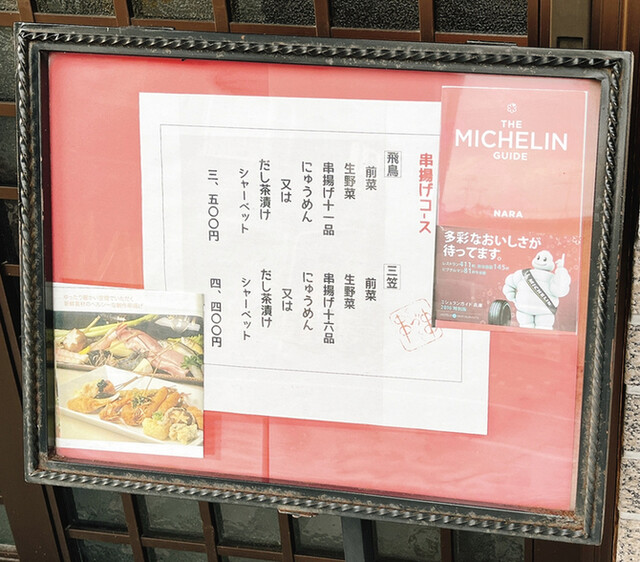 串揚げコース
飛鳥
前菜
生野菜
串揚げ十一品
にゅうめん
又は
だし茶漬け
シャーベット
三、五〇〇円
三笠
前菜
生野菜
串揚げ十六品
にゅうめん
又は
だし茶漬け
シャーベット
四、四〇〇円
THE
MICHELIN
GUIDE
NARA
多彩なおいしさが
待ってます。